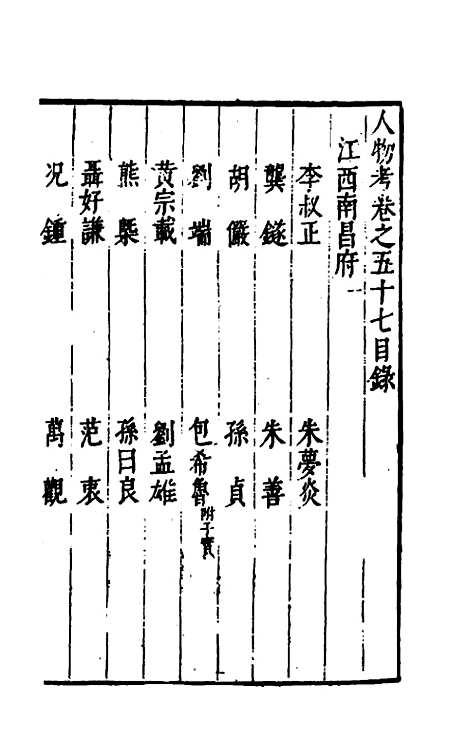 人物考卷之五十七目錄
江西南昌府一
李叔正 朱夢炎
龔鐩 朱善
胡儼 孫貞
劉端 包希魯附子實
黃宗載 劉孟雄
熊槩 孫曰良
聶好謙 范衷
况鍾 萬觀